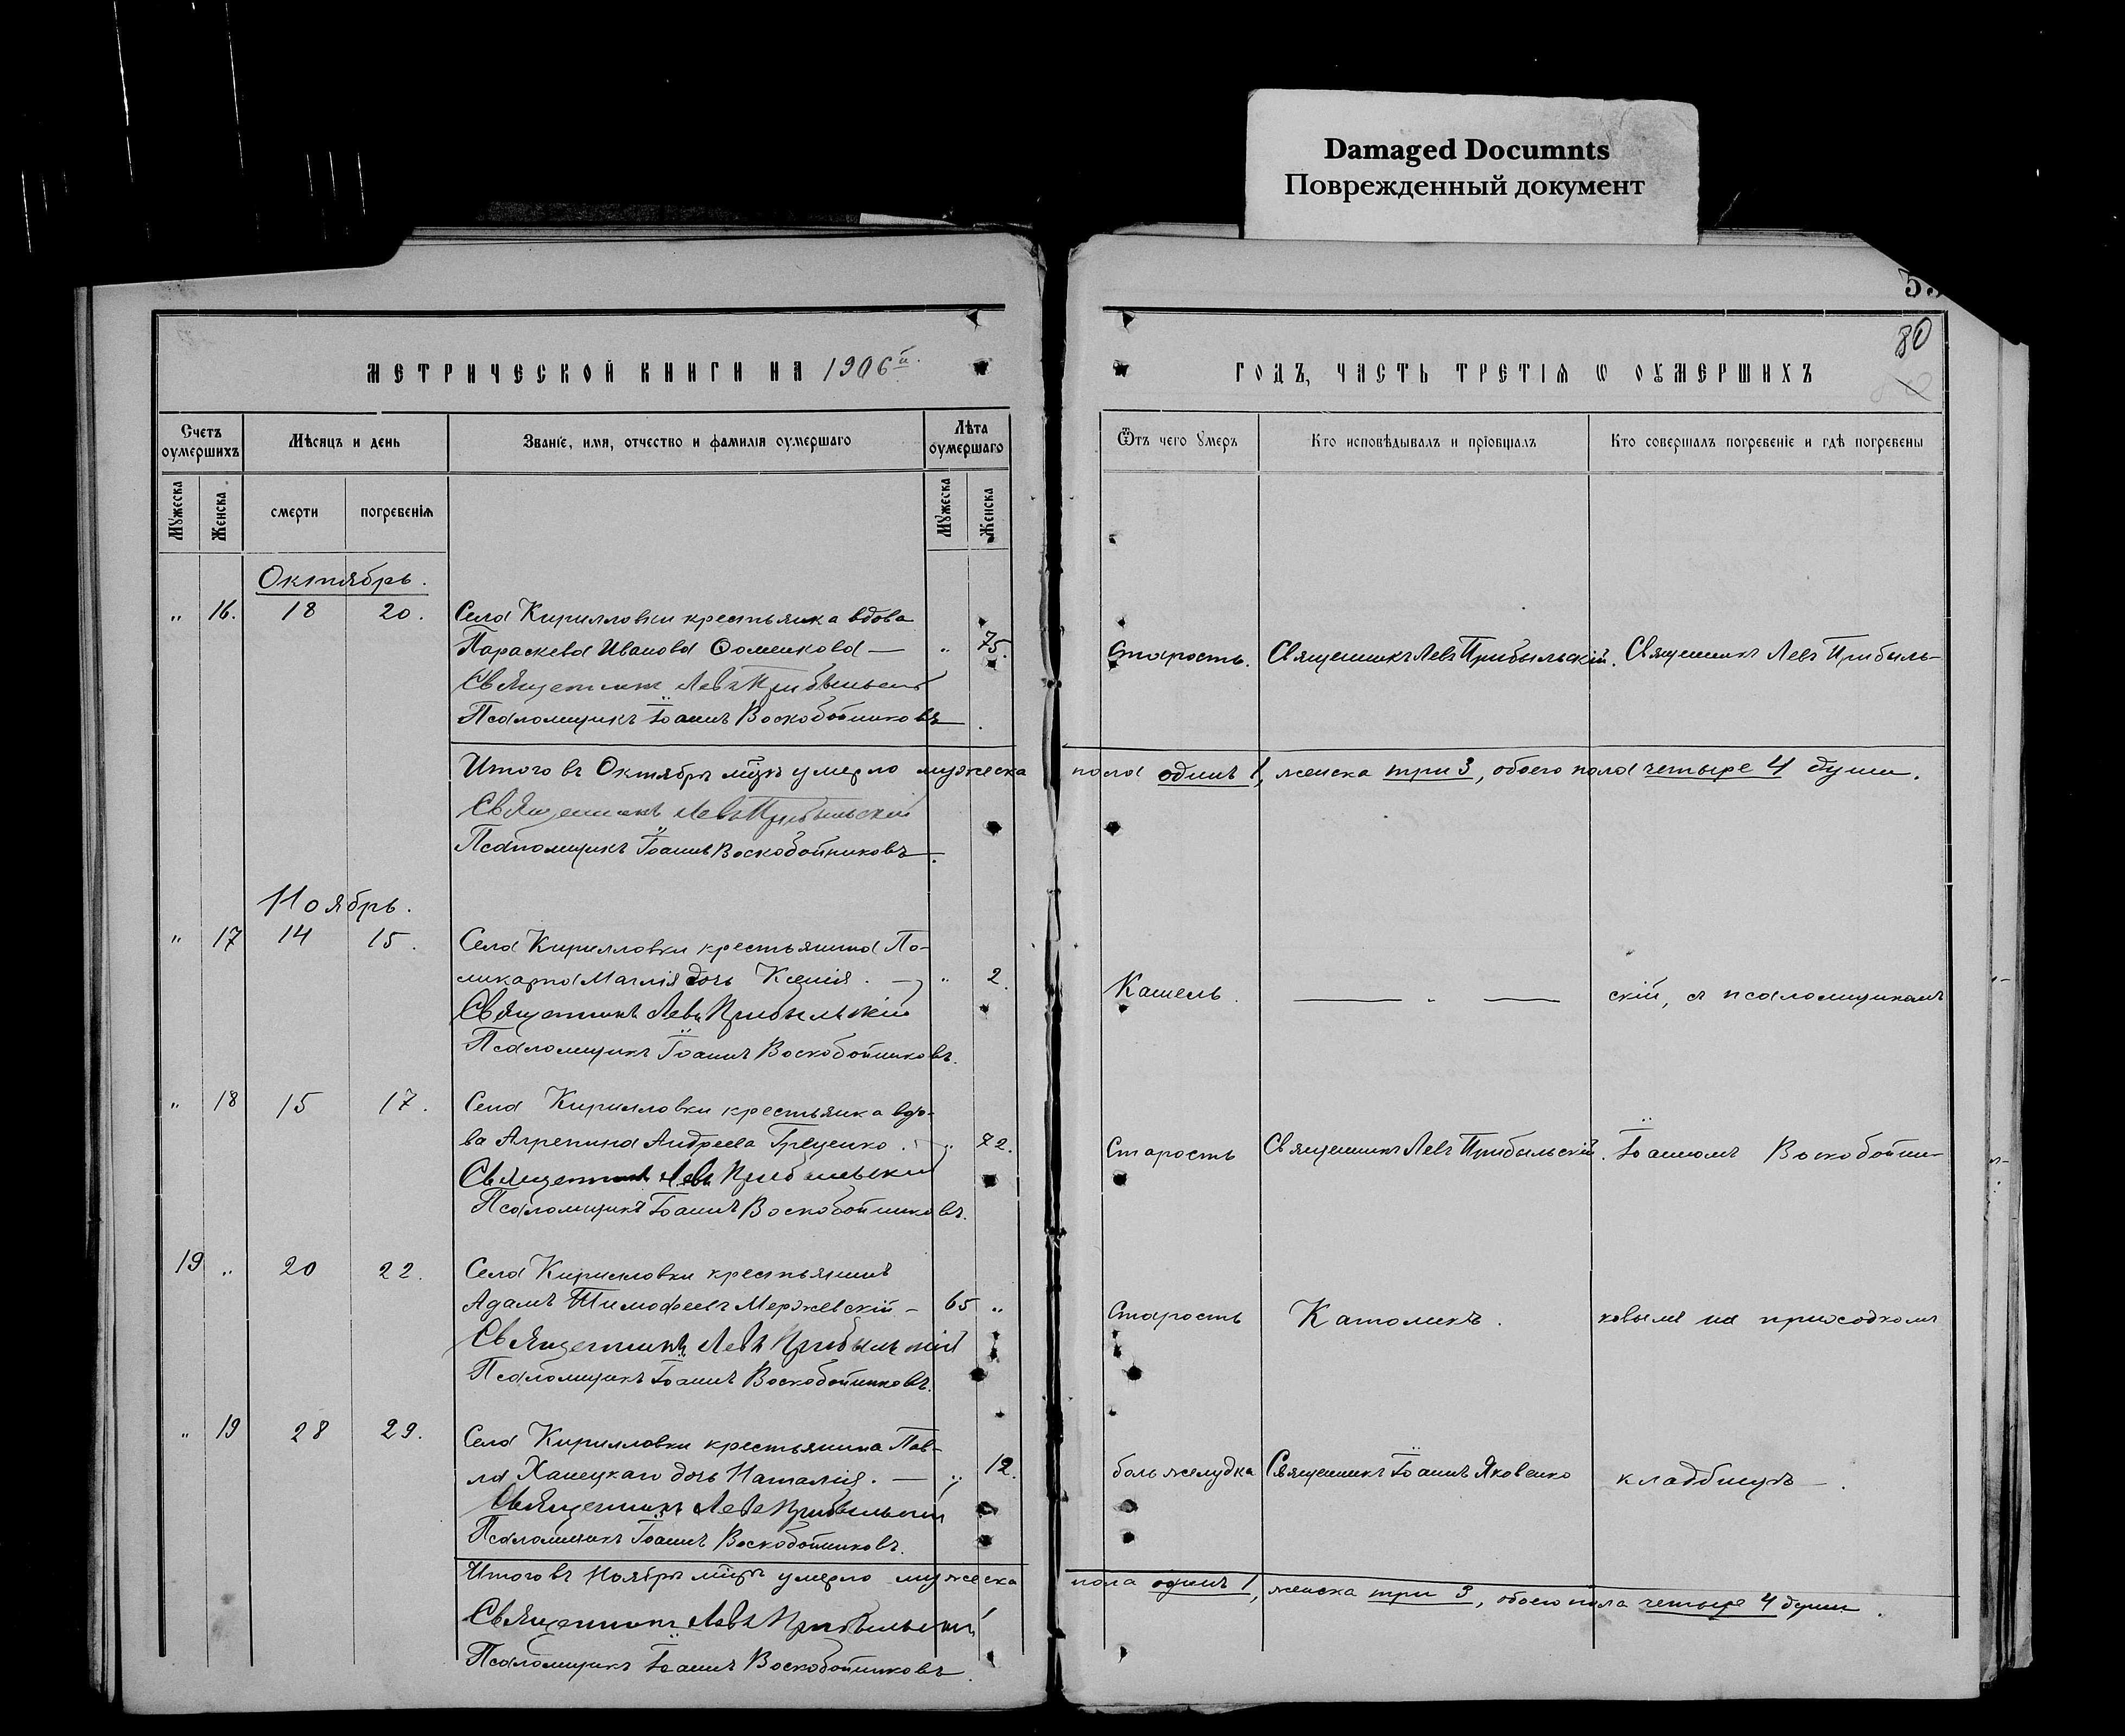 Damaged Documnts
Поврежденный документ
80
МЕТРИЧЕСКОЙ КНИГИ НА 1906й
ГОДЪ, ЧАСТЬ ТРЕТІЯ Ѡ ОУМЕРШИХЪ
Счетъ оумершихъ
Мѣсяцъ и день
Званіе, имя, отчество и фамилія оумершаго
Лѣта оумершаго
Ѿтъ чего Умеръ
Кто исповѣдывалъ и пріобщалъ
Кто совершалъ погребеніе и гдѣ погребены
Мужеска
Женска
смерти
погребенія
Мужеска
Женска
Октябрь.
" 16. 18 20. Села Кирилловки крестьянка вдова
Параскева Иванова Фоменкова — " 75. Старость. Священникъ Левъ Прибыльскій. Священникъ Левъ Прибыль-
Священникъ Левъ Прибыльскій
Псаломщикъ Іоаннъ Воскобойниковъ
Итого въ Октябрѣ мцѣ умерло мужеска пола одинъ 1, женска три 3, обоего пола четыре 4 души.
Священникъ Левъ Прибыльскій
Псаломщикъ Іоаннъ Воскобойниковъ.
Ноябрь.
" 17 14 15. Села Кирилловки крестьянина По-
ликарпа дочь Ксенія. — " 2. Кашель. — " — скій, съ псаломщикомъ
Священникъ Левъ Прибыльскій
Псаломщикъ Іоаннъ Воскобойниковъ.
" 18 15 17. Села Кирилловки крестьянка вдо-
ва Агрепина Андреева Грещенко. — " 72. Старость Священникъ Левъ Прибыльскій. Іоанномъ Воскобойни-
Священникъ Левъ Прибыльскій
Псаломщикъ Іоаннъ Воскобойниковъ.
19 " 20 22. Села Кирилловки крестьянинъ
Адамъ Тимофеевъ Мержевскій — 65 " Старость Католикъ. ковымъ на приходскомъ
Священникъ Левъ Прибыльскій
Псаломщикъ Іоаннъ Воскобойниковъ.
" 19 28 29. Села Кирилловки крестьянина Пав-
ла Ханецкаго дочь Наталія. — " 12. боль желудка Священникъ Іоаннъ Яковенко кладбищѣ —.
Священникъ Левъ Прибыльскій
Псаломщикъ Іоаннъ Воскобойниковъ.
Итого въ Ноябрѣ мцѣ умерло мужеска пола одинъ 1, женска три 3, обоего пола четыре 4 души.
Священникъ Левъ Прибыльскій
Псаломщикъ Іоаннъ Воскобойниковъ.